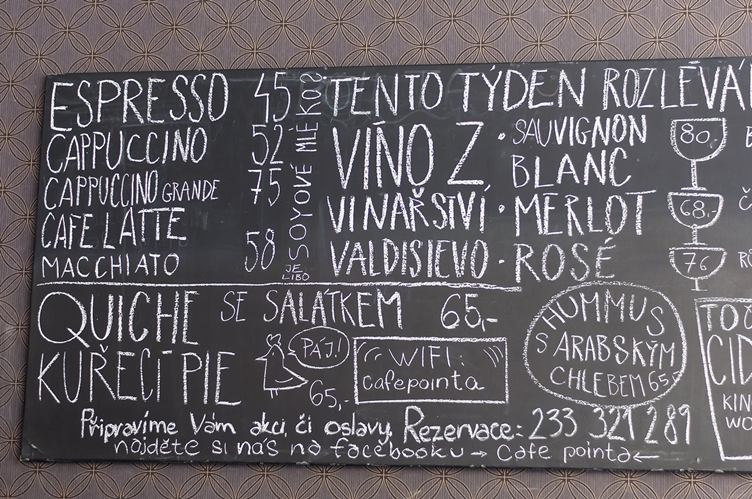 ESPRESSO 45
CAPPUCCINO 52
CAPPUCCINO GRANDE 75
CAFE LATTE
MACCHIATO 58
SOYOVÉ MLÉKO?
JE LIBO
TENTO TÝDEN ROZLÉVÁ
VÍNO Z
VINAŘSTVÍ
VALDISIEVO
• SAUVIGNON BLANC 80,-
• MERLOT 68,-
• ROSÉ 76
QUICHE SE SALÁTKEM 65,-
KUŘECÍ PIE 65,-
PÁJ!
WIFI:
cafepointa
HUMMUS
S ARABSKÝM
CHLEBEM 65,-
CID
KIN
WO
Připravíme Vám akci, či oslavy, Rezervace: 233 321 289
nojděte si nás na facebooku → Cafe pointa ←